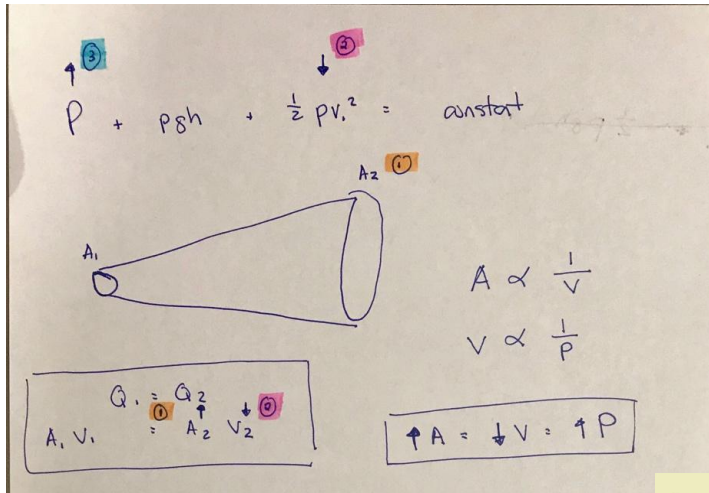 ↑ ③ ↓ ②
P + ρgh + ½ ρv₁² = constant
A₂ ①
A₁
A ∝ 1/V
V ∝ 1/P
Q₁ = Q₂
① ↑ ↓ ②
A₁ V₁ = A₂ V₂
↑ A = ↓ V = ↑ P